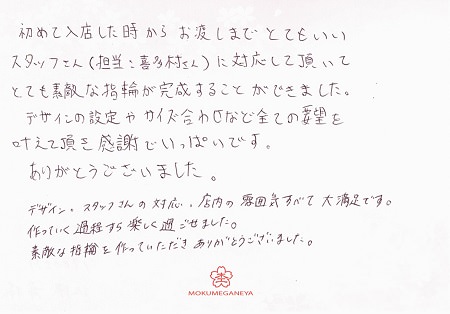 初めて入店した時から お渡しまで とてもいい
スタッフさん（担当：喜多村さん）に対応して頂いて
とても素敵な指輪が完成することができました。
デザインの設定や サイズ合わせなど全ての要望を
叶えて頂き 感謝でいっぱいです。
ありがとうございました。
デザイン、スタッフさんの対応、店内の雰囲気すべて 大満足です。
作っていく過程すら 楽しく過ごせました。
素敵な指輪を作っていただき ありがとうございました。
MOKUMEGANEYA